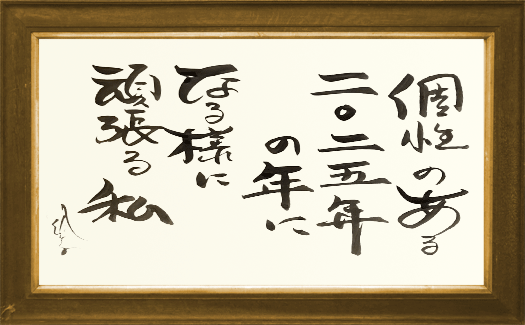 個性のある
二〇二五年
の年に
なる様に
頑張る私